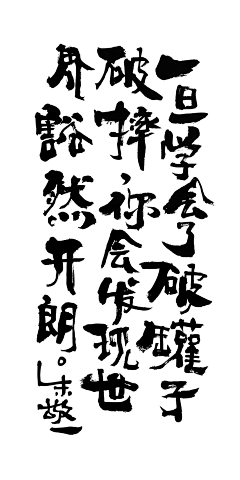 一旦学会了破罐子
破摔，你会发现世
界豁然开朗。朱敬一